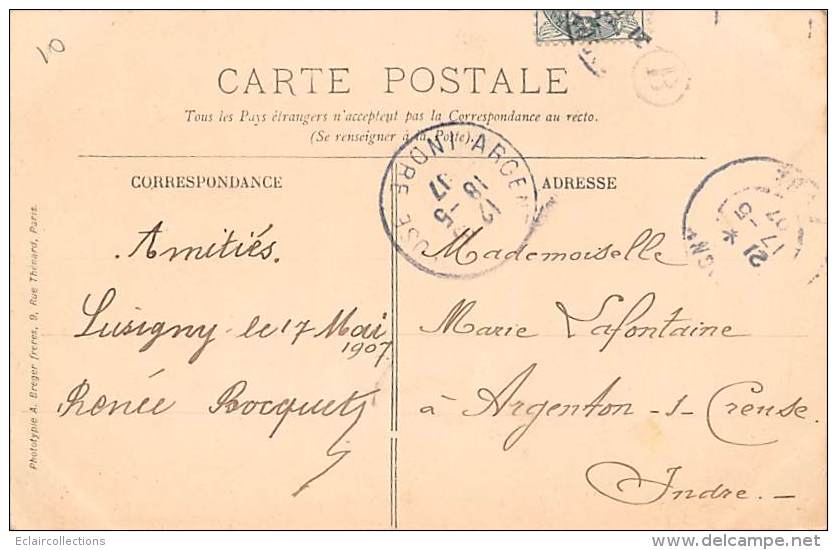 10
B
CARTE POSTALE
Tous les Pays étrangers n'acceptent pas la Correspondance au recto.
(Se renseigner à la Poste).
CORRESPONDANCE
ADRESSE
Amitiés.
Lusigny le 17 Mai
1907
Renée Rocquet
Mademoiselle
Marie Lafontaine
à Argenton-s-Creuse.
Indre.
INDRE
17-5
07
Phototypie A. Breger frères, 9, Rue Thénard, Paris.
Eclaircollections
delcampe.net